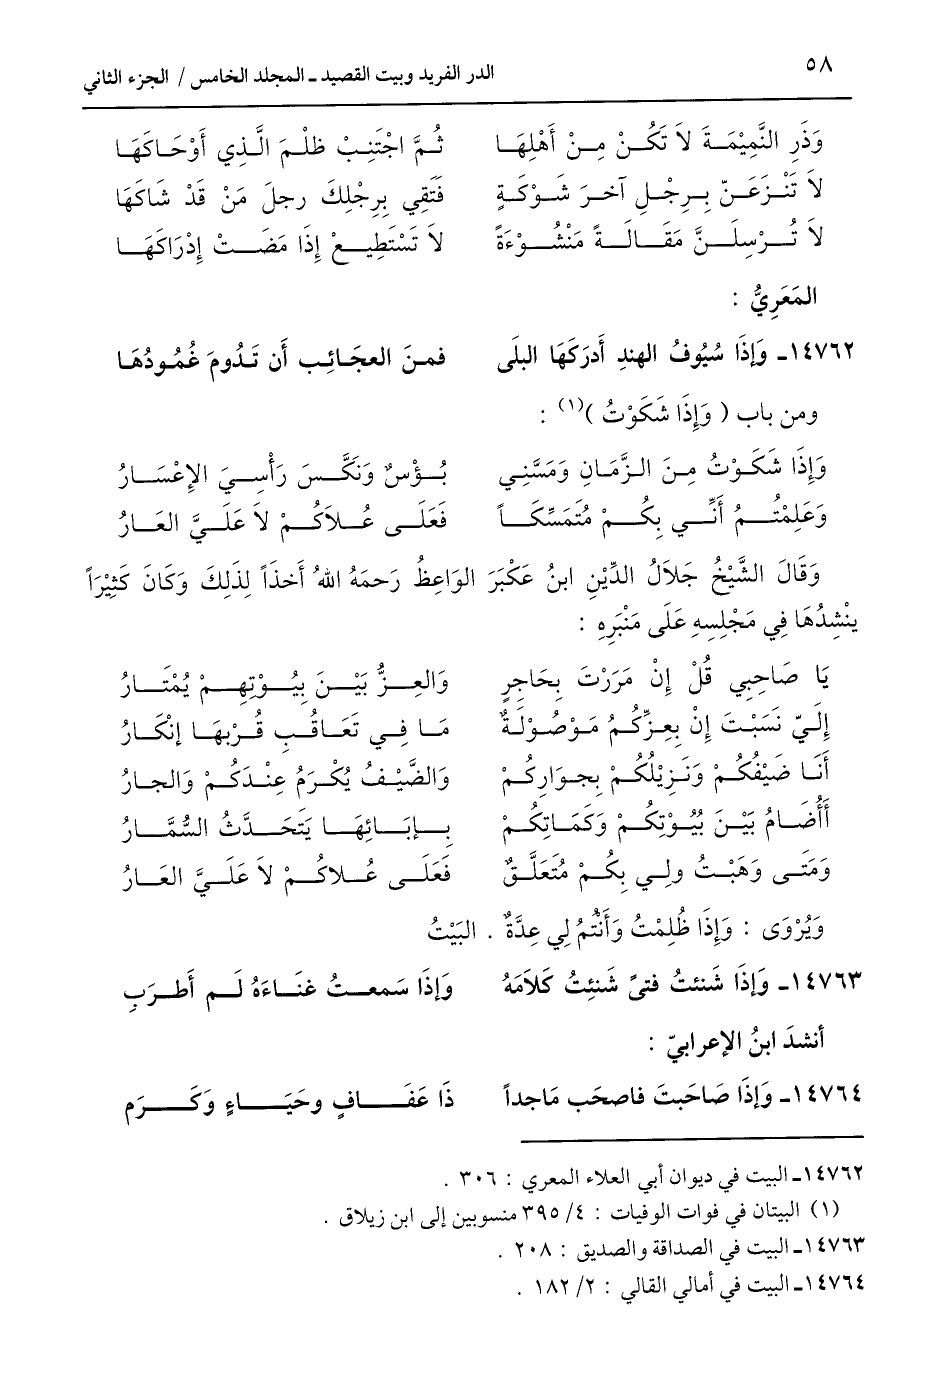 ٥٨
الدر الفريد وبيت القصيد ـ المجلد الخامس / الجزء الثاني
وَذَرِ النَّمِيْمَةَ لاَ تَكُـنْ مِـنْ أَهْلِهَـا ثُمَّ اجْتَنِبْ ظلْمَ الَّذِي أَوْحَاكَهَا
لاَ تَنْزَعَـنّ بِـرِجْـلِ آخـرَ شَـوْكَـةٍ فَتَقِي بِرِجْلِكَ رجلَ مَنْ قَدْ شَاكَهَا
لاَ تُـرْسِلَـنَّ مَقَـالَـةً مَنْشُـوْءَةً لاَ تَسْتَطِيـعْ إِذَا مَضَـتْ إِدْرَاكَهَـا
المَعَرِيُّ :
١٤٧٦٢ـ وَإِذَا سُيُوفُ الهندِ أَدرَكَهَا البلَى فمـنَ العجَـائبِ أَن تَـدُومَ غُمُـودُهَـا
ومن باب ( وَإِذَا شَكَوْتُ )(١) :
وَإِذَا شَكَـوْتُ مِـنَ الـزَّمَـانِ وَمَسَّنِـي بُـؤْسٌ وَنَكَّـسَ رَأْسِـيَ الإِعْسَـارُ
وَعَلِمْتُـمُ أَنِّـي بِكُـمْ مُتَمَسِّكـاً فَعَلَـى عُـلاَكُـمْ لاَ عَلَـيَّ العَـارُ
وَقَالَ الشَّيْخُ جَلاَلُ الدِّيْنِ ابنُ عَكْبَرَ الوَاعِظُ رَحمَهُ اللهُ أَخذَاً لِذَلِكَ وَكَانَ كَثِيْرَاً
ينْشِدُهَا فِي مَجْلِسِهِ عَلَى مَنْبَرِهِ :
يَا صَاحِبِي قُلْ إِنْ مَرَرْتَ بِحَاجرٍ وَالعِـزُّ بَيْـنَ بِيُـوْتِهِـمْ يُمْتَـارُ
إِلَيّ نَسَبْتَ إِنْ بِعِزِّكُمُ مَوْصُوْلَةٌ مَـا فِـي تَعَـاقُـبِ قُـرْبِهَـا إِنْكَـارُ
أَنَـا ضَيْفُكُـمْ وَنَـزِيْلُكُـمْ بِجـوَارِكُـمْ وَالضَّيْـفُ يُكْـرَمُ عِنْـدَكُـمْ وَالجـارُ
أَأُضَـامُ بَيْـنَ بُيُـوْتِكُـمْ وَكمَـاتِكُـمْ بِـإِبَـائِهَـا يَتَحَـدَّثُ السُّمَّـارُ
وَمَتَـى وَهَبْـتُ ولِـي بِكُـمْ مُتَعَلَّـقٌ فَعَلَـى عُـلاكُـمْ لاَ عَلَـيَّ العَـارُ
وَيُرْوَى : وَإِذَا ظُلِمْتُ وَأَنْتُمُ لِي عِدَّةٌ . البَيْتُ
١٤٧٦٣ـ وَإِذَا شَنئتُ فتىً شَنِئتُ كَلاَمَهُ وَإذَا سَمعـتُ غنَـاءَهُ لَـم أَطـرَبِ
أنشدَ ابنُ الإعرابيّ :
١٤٧٦٤ـ وَإِذَا صَاحَبتَ فاصحَب مَاجداً ذَا عَفَـافٍ وحيَـاءٍ وكَـرَم
١٤٧٦٢ـ البيت في ديوان أبي العلاء المعري : ٣٠٦ .
(١) البيتان في فوات الوفيات : ٤/ ٣٩٥ منسوبين إلى ابن زيلاق .
١٤٧٦٣ـ البيت في الصداقة والصديق : ٢٠٨ .
١٤٧٦٤ـ البيت في أمالي القالي : ٢/ ١٨٢ .